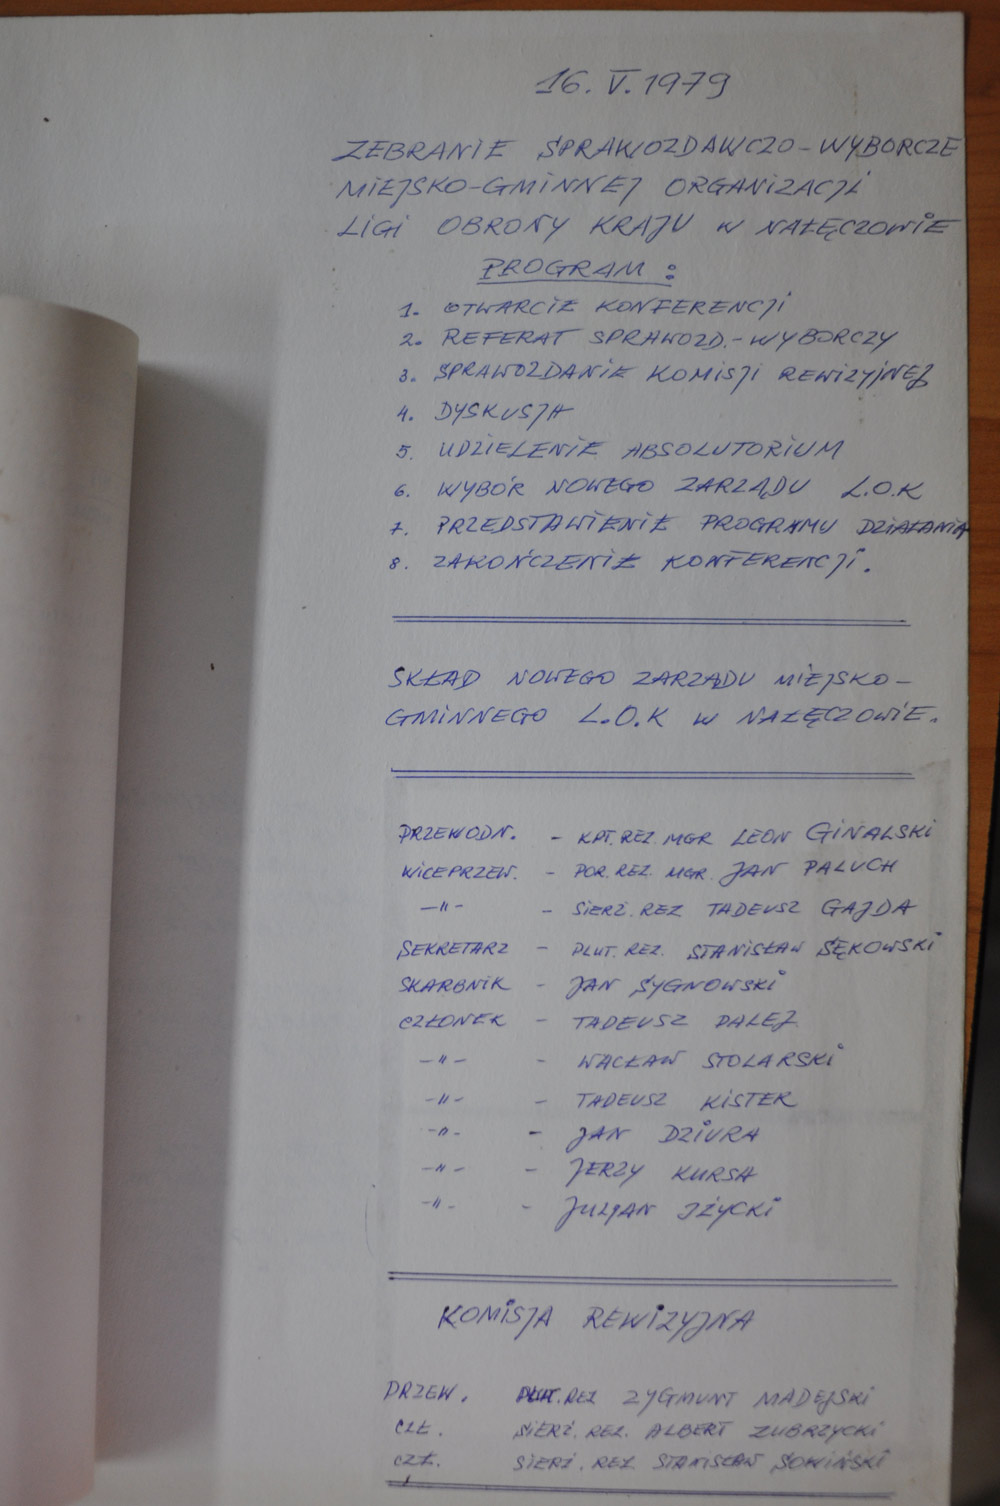 16. V. 1979
ZEBRANIE SPRAWOZDAWCZO-WYBORCZE
MIEJSKO-GMINNEJ ORGANIZACJI
LIGI OBRONY KRAJU W NAŁĘCZOWIE
PROGRAM:
1. OTWARCIE KONFERENCJI
2. REFERAT SPRAWOZD.-WYBORCZY
3. SPRAWOZDANIE KOMISJI REWIZYJNEJ
4. DYSKUSJA
5. UDZIELENIE ABSOLUTORIUM
6. WYBÓR NOWEGO ZARZĄDU L.O.K
7. PRZEDSTAWIENIE PROGRAMU DZIAŁANIA
8. ZAKOŃCZENIE KONFERENCJI.
SKŁAD NOWEGO ZARZĄDU MIEJSKO-
GMINNEGO L.O.K W NAŁĘCZOWIE.
PRZEWODN. - KPT. REZ. MGR LEON GINALSKI
WICEPRZEW. - POR. REZ. MGR. JAN PALUCH
-"- - SIERŻ. REZ TADEUSZ GAJDA
SEKRETARZ - PLUT. REZ. STANISŁAW SĘKOWSKI
SKARBNIK - JAN SYGNOWSKI
CZŁONEK - TADEUSZ PALEJ
-"- - WACŁAW STOLARSKI
-"- - TADEUSZ KISTER
-"- - JAN DZIURA
-"- - JERZY KURSA
-"- - JULJAN IŻYCKI
KOMISJA REWIZYJNA
PRZEW. PLUT. REZ ZYGMUNT MADEJSKI
CZŁ. SIERŻ. REZ. ALBERT ZUBRZYCKI
CZŁ. SIERŻ. REZ STANISŁAW SOWIŃSKI